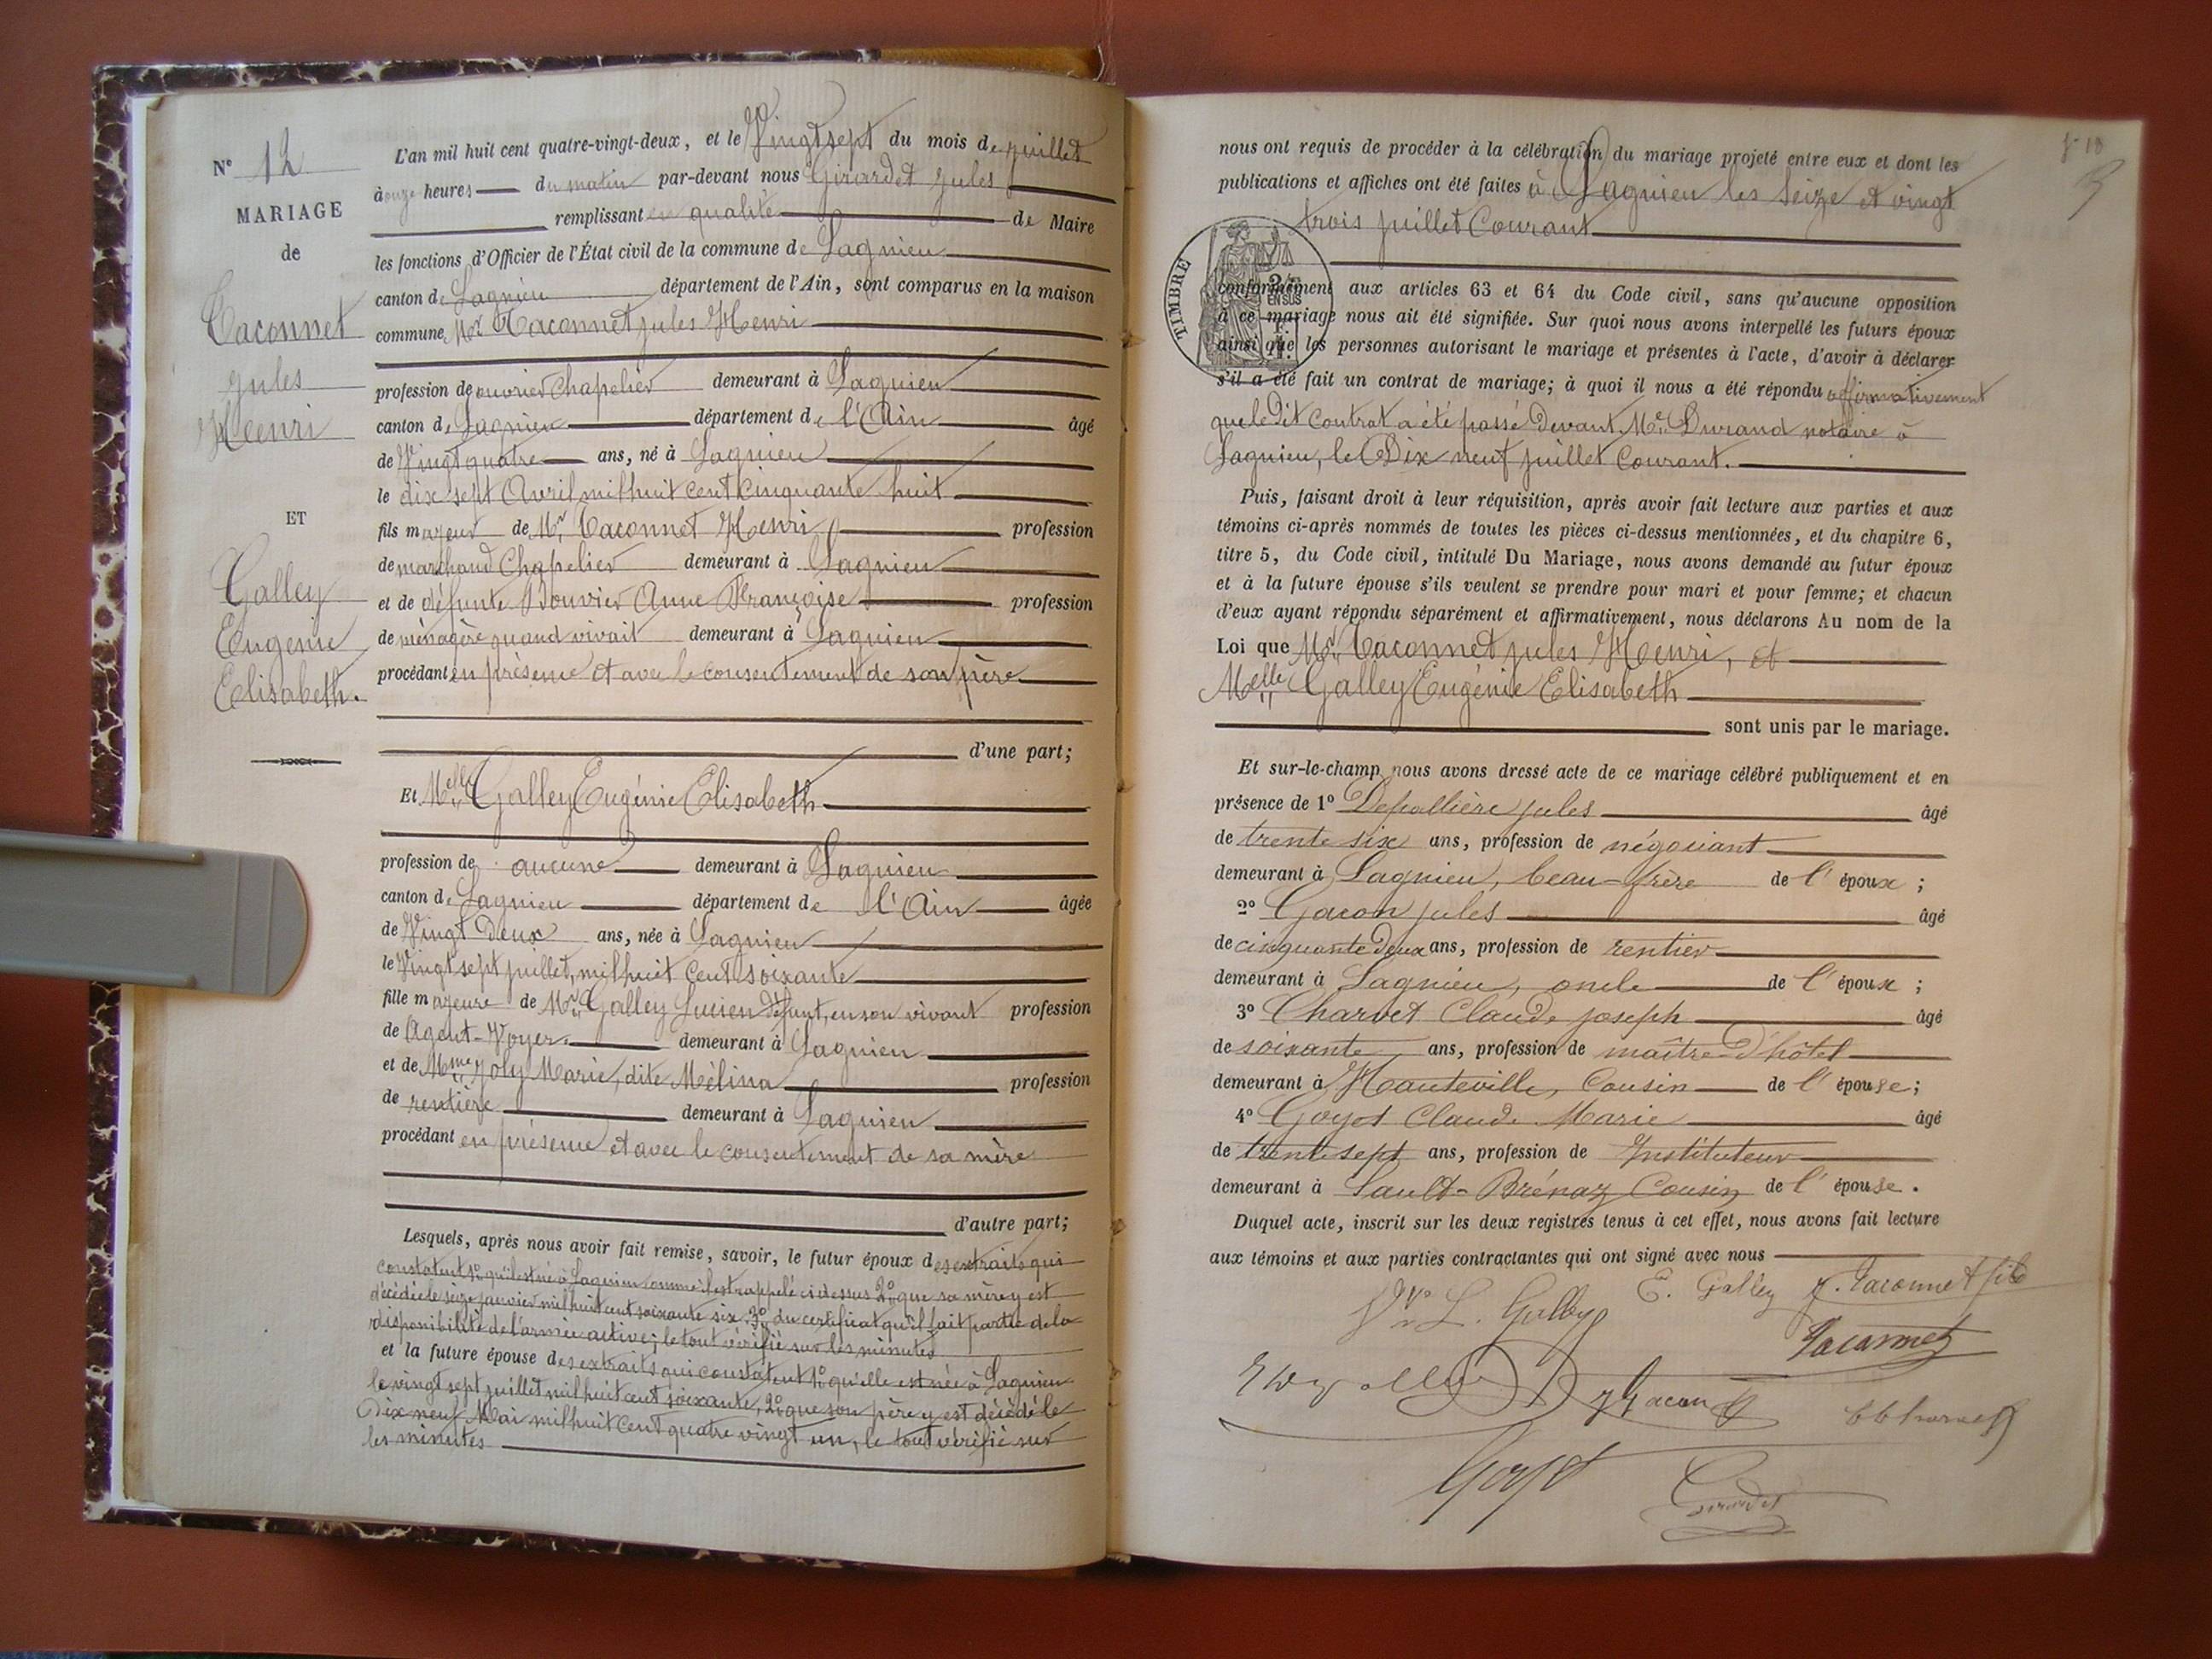 N° 12
MARIAGE
de
Taconnet
Jules
Henri
ET
Galley
Eugénie
Elisabeth.
L'an mil huit cent quatre-vingt-deux, et le Vingt sept du mois de juillet
à onze heures du matin par-devant nous Girardet Jules
remplissant en qualité de Maire
les fonctions d'Officier de l'État civil de la commune de Lagnieu
canton de Lagnieu département de l'Ain, sont comparus en la maison
commune, Mr Taconnet Jules Henri
profession de ouvrier Chapelier demeurant à Lagnieu
canton de Lagnieu département de l'Ain âgé
de Vingt quatre ans, né à Lagnieu
le dix sept Avril mil huit cent cinquante huit
fils majeur de Mr Taconnet Henri profession
de marchand Chapelier demeurant à Lagnieu
et de défunte Bouvier Anne Françoise profession
de ménagère quand vivait demeurant à Lagnieu
procédant en présence et avec le consentement de son père
d'une part;
Et Melle Galley Eugénie Elisabeth
profession de aucune demeurant à Lagnieu
canton de Lagnieu département de l'Ain âgée
de Vingt Deux ans, née à Lagnieu
le Vingt sept juillet, mil huit cent soixante
fille majeure de Mr Galley Lucien défunt, en son vivant profession
de Agent-Voyer demeurant à Lagnieu
et de Mme Joly Marie, dite Mélina profession
de rentière demeurant à Lagnieu
procédant en présence et avec le consentement de sa mère
d'autre part;
Lesquels, après nous avoir fait remise, savoir, le futur époux des extraits qui
constatent 1° qu'il est né à Lagnieu comme il est rappelé ci dessus 2° que sa mère y est
décédée le seize janvier mil huit cent soixante six 3° du certificat qu'il fait partie de la
disponibilité de l'armée active; le tout vérifié sur les minutes
et la future épouse des extraits qui constatent 1° qu'elle est née à Lagnieu
le vingt sept juillet mil huit cent soixante, 2° que son père y est décédé le
Dix neuf Mai mil huit cent quatre vingt un, le tout vérifié sur
les minutes
nous ont requis de procéder à la célébration du mariage projeté entre eux et dont les
publications et affiches ont été faites à Lagnieu les Seize et vingt
trois juillet Courant
TIMBRE
EN SUS
conformément aux articles 63 et 64 du Code civil, sans qu'aucune opposition
à ce mariage nous ait été signifiée. Sur quoi nous avons interpellé les futurs époux
ainsi que les personnes autorisant le mariage et présentes à l'acte, d'avoir à déclarer
s'il a été fait un contrat de mariage; à quoi il nous a été répondu affirmativement
que le Dit Contrat a été passé Devant Me Durand notaire à
Lagnieu, le Dix neuf juillet Courant.
Puis, faisant droit à leur réquisition, après avoir fait lecture aux parties et aux
témoins ci-après nommés de toutes les pièces ci-dessus mentionnées, et du chapitre 6,
titre 5, du Code civil, intitulé Du Mariage, nous avons demandé au futur époux
et à la future épouse s'ils veulent se prendre pour mari et pour femme; et chacun
d'eux ayant répondu séparément et affirmativement, nous déclarons Au nom de la
Loi que Mr Taconnet Jules Henri, et
Melle Galley Eugénie Elisabeth
sont unis par le mariage.
Et sur-le-champ nous avons dressé acte de ce mariage célébré publiquement et en
présence de 1° Depallière Jules âgé
de trente six ans, profession de négociant
demeurant à Lagnieu, beau-frère de l'époux ;
2° Gacon Jules âgé
de cinquante Deux ans, profession de rentier
demeurant à Lagnieu, oncle de l'époux ;
3° Charvet Claude Joseph âgé
de soixante ans, profession de maître d'hôtel
demeurant à Hauteville, Cousin de l'épouse ;
4° Goyet Claude Marie âgé
de trente sept ans, profession de Instituteur
demeurant à Sault-Brénaz Cousin de l'épouse.
Duquel acte, inscrit sur les deux registres tenus à cet effet, nous avons fait lecture
aux témoins et aux parties contractantes qui ont signé avec nous
Vve L. Galley E. Galley J. Taconnet fils
Taconnet
J Gacon
Goyet
Girardet